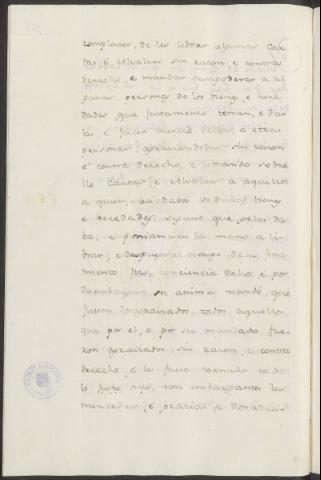 complacer, de les librar algunas Car
tas, é Alvalaes sin raxon, e contra
derecho, e mandar desapoderar a al
gunas personas de los bienes, e here
dades, que justamente tenian, e dar
las, e facer merced dellas a otras
personas, apoderandolas sin raxon
é contra derecho, é librando sobre
llo Cartas e Alvalaes a aquellos
a quien dichos bienes
e heredades, que
ba, e ponian en la mano a li
brar; e despues al tiempo de su fina
miento, conciencia dello, e por
desembargar su anima mandó, que
fuesen todos aquellos,
que por el, o por su mandado fue
ron sin raxon, e contra
derecho, e les fuese tornado todo
lo suyo, non embargantes las
mercedes, é gracias, e donacio